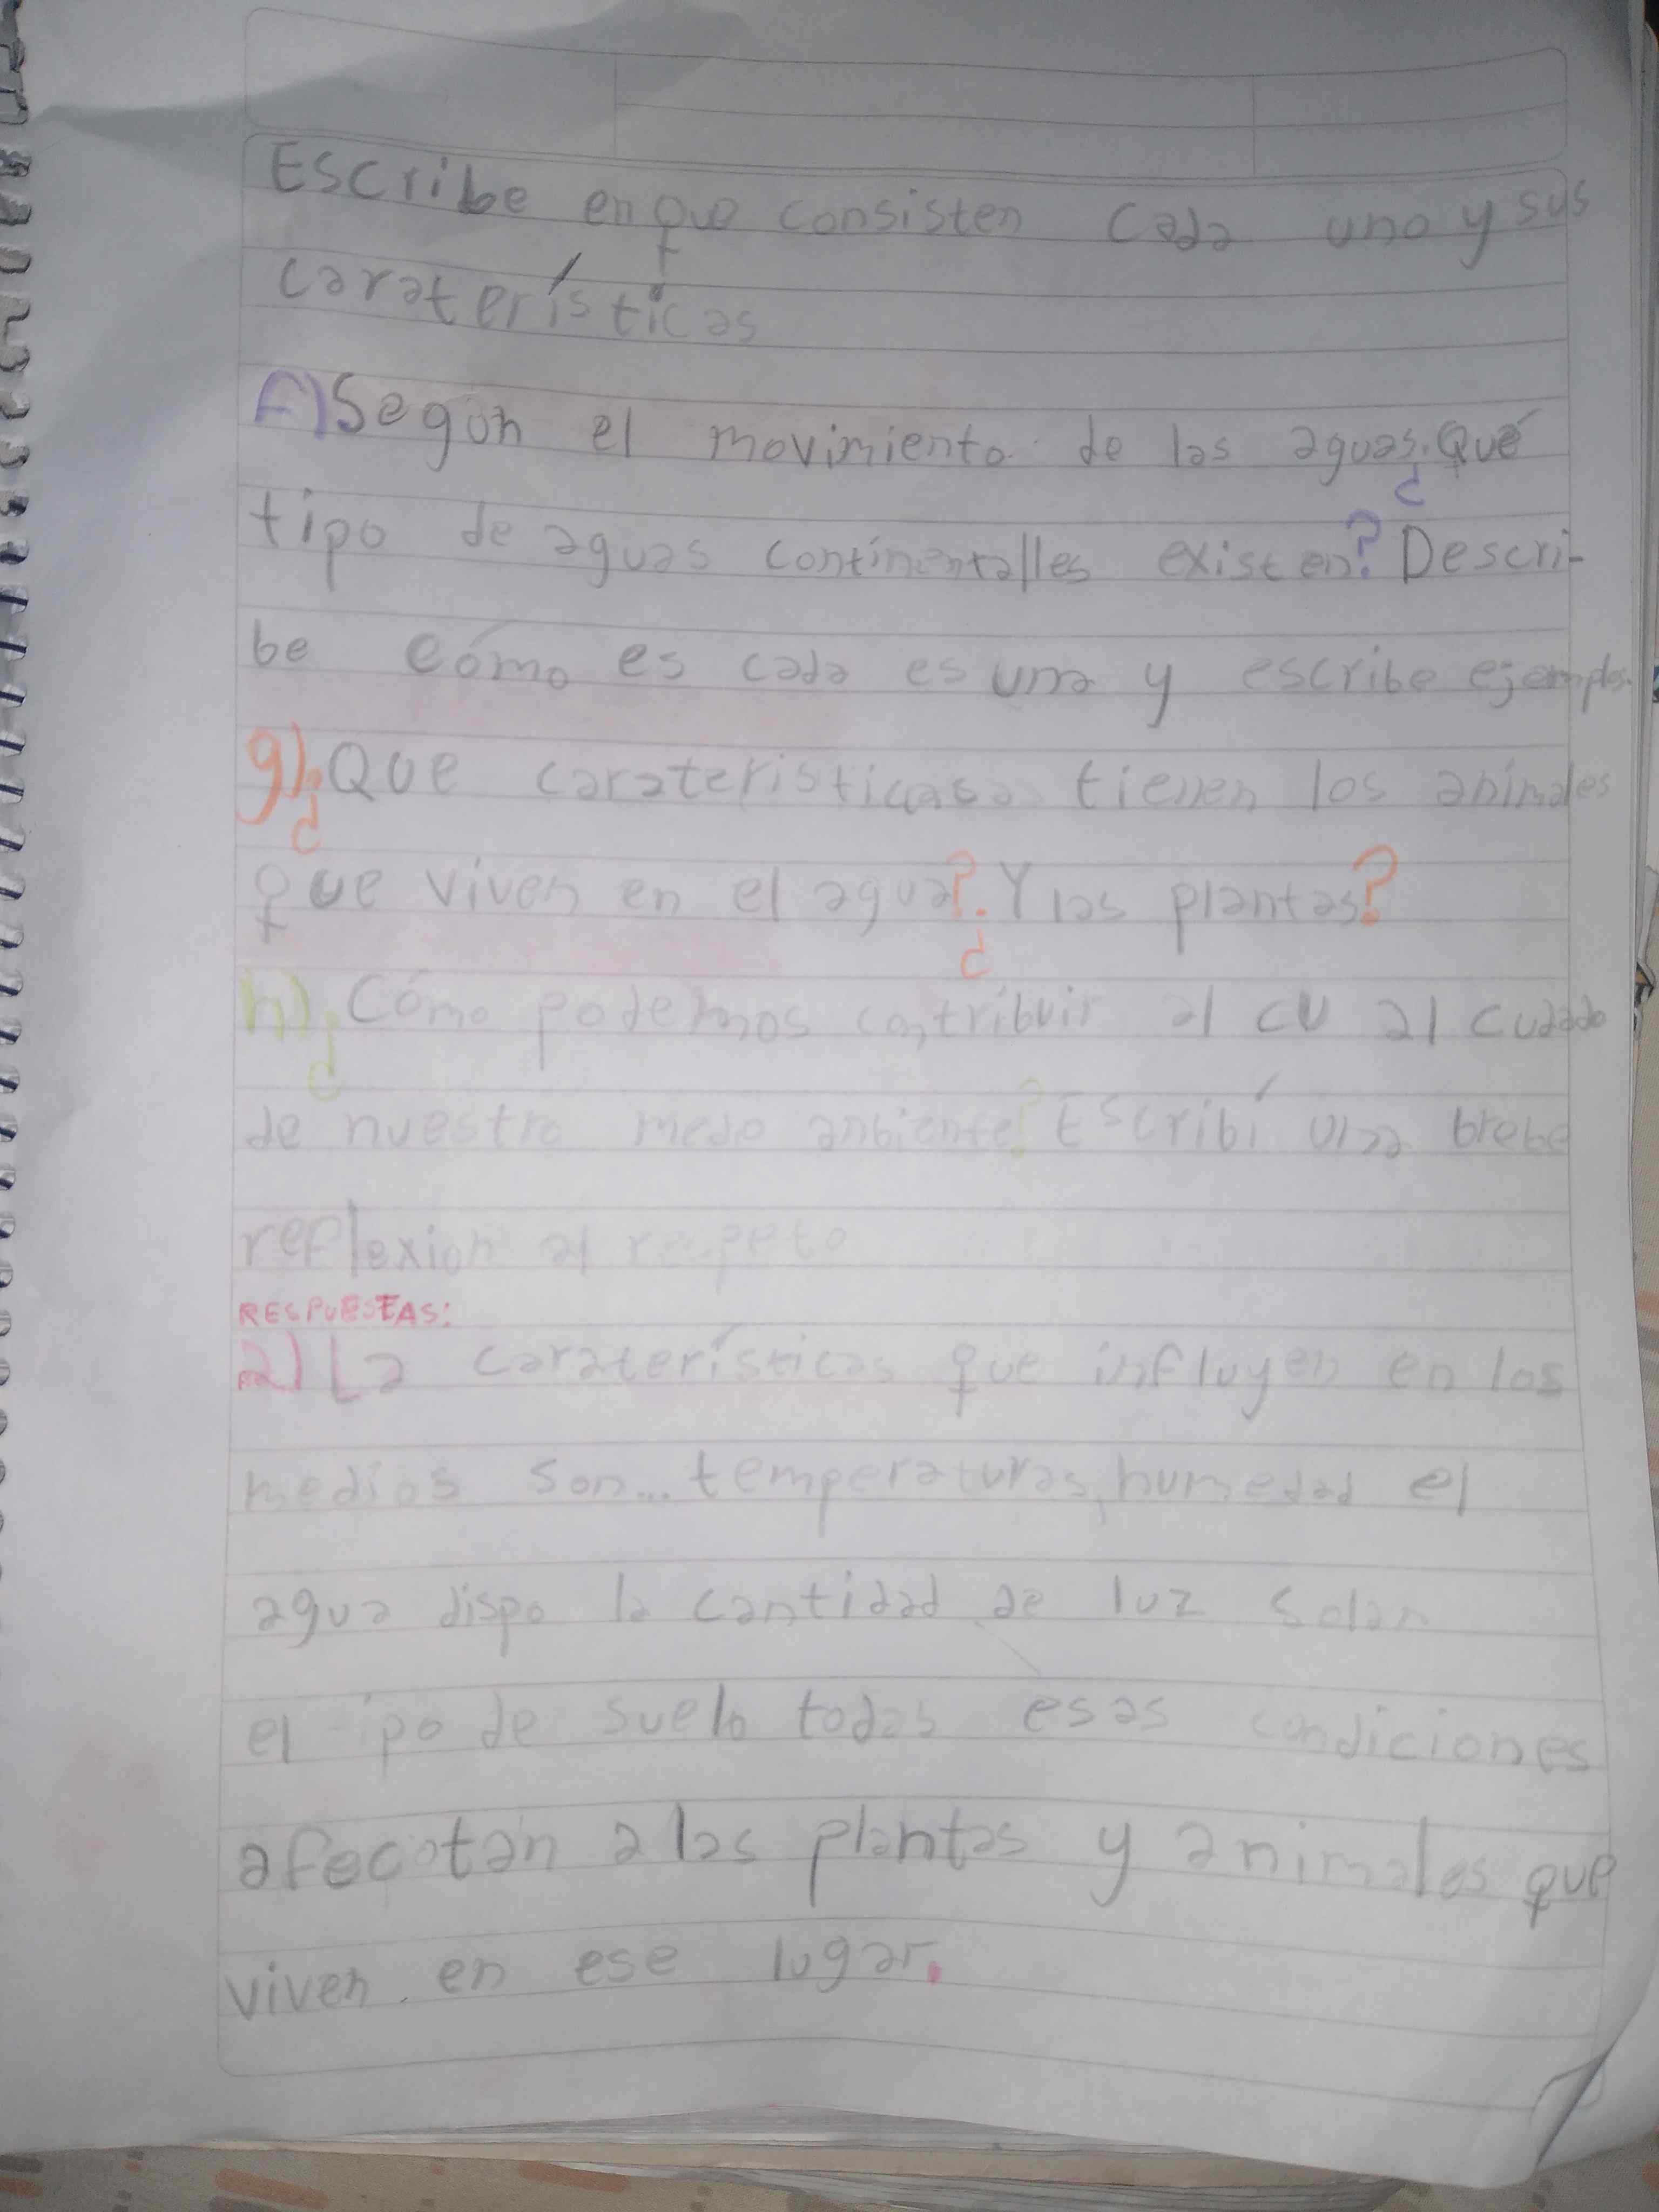 Escribe en que consisten cada uno y sus
caraterísticas
F) Según el movimiento de las aguas. ¿Qué
tipo de aguas continentalles existen? Descri-
be cómo es cada es una y escribe ejemplos.
g) ¿Que carateristicas tienen los animales
que viven en el agua? ¿Y las plantas?
h) ¿Cómo podemos contribuir al cu al cudado
de nuestro medo anbiente? Escribí una brebe
reflexion al respeto
RESPUESTAS:
a) La caraterísticas que influyen en los
medios son... temperaturas, humedad el
agua dispo la cantidad de luz solar
el ipo de suelo todas esas condiciones
afecotan a las plantas y animales que
viven en ese lugar.